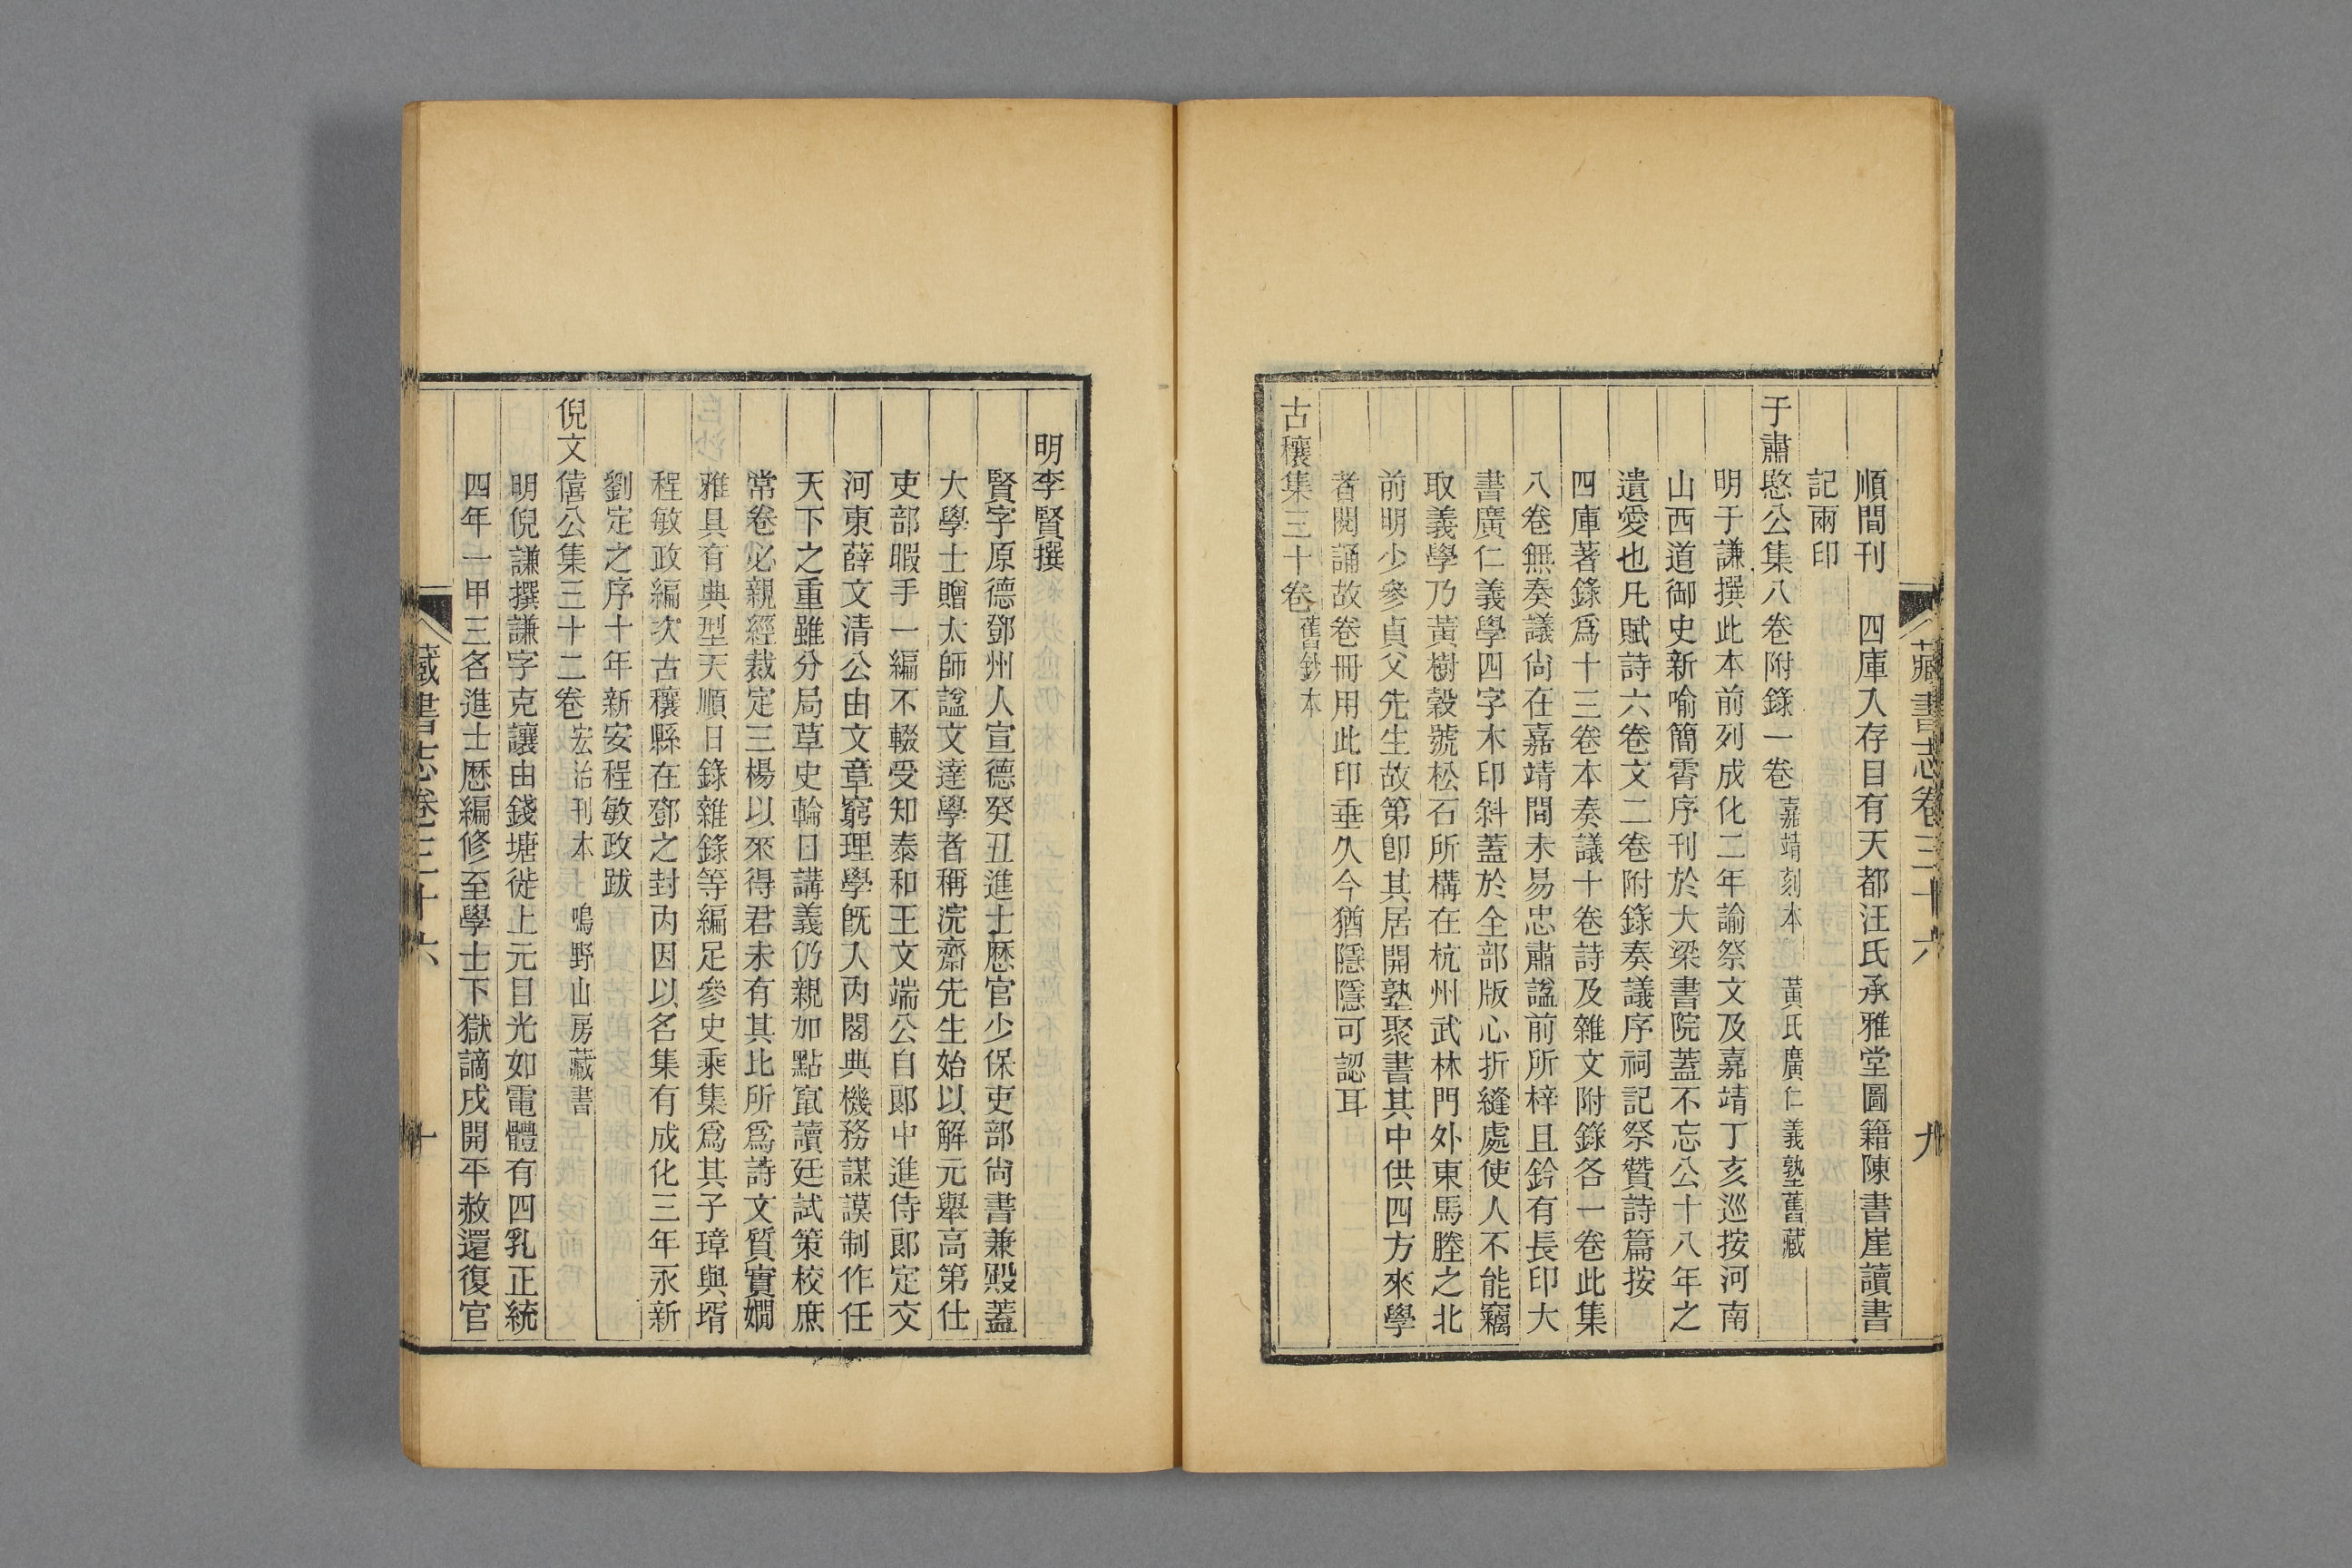 藏書志卷三十六
九
順間刊　四庫入存目有天都汪氏承雅堂圖籍陳書崖讀書
記兩印
于肅愍公集八卷附錄一卷嘉靖刻本　黃氏廣仁義塾舊藏
明于謙撰此本前列成化二年諭祭文及嘉靖丁亥巡按河南
山西道御史新喻簡霄序刊於大梁書院蓋不忘公十八年之
遺愛也凡賦詩六卷文二卷附錄奏議序祠記祭贊詩篇按
四庫著錄爲十三卷本奏議十卷詩及雜文附錄各一卷此集
八卷無奏議尙在嘉靖間未易忠肅諡前所梓且鈐有長印大
書廣仁義學四字木印斜蓋於全部版心折縫處使人不能竊
取義學乃黃樹穀號松石所構在杭州武林門外東馬塍之北
前明少參貞父先生故第卽其居開塾聚書其中供四方來學
者閱誦故卷冊用此印垂久今猶隱隱可認耳
古穰集三十卷舊鈔本
明李賢撰
賢字原德鄧州人宣德癸丑進士歷官少保吏部尙書兼殿蓋
大學士贈太師諡文達學者稱浣齋先生始以解元舉高第仕
吏部暇手一編不輟受知泰和王文端公自郎中進侍郎定交
河東薛文清公由文章窮理學旣入內閣典機務謀謨制作任
天下之重雖分局草史輪日講義仍親加點竄讀廷試策校庶
常卷必親經裁定三楊以來得君未有其比所爲詩文質實嫺
雅具有典型天順日錄雜錄等編足參史乘集爲其子璋與壻
程敏政編次古穰縣在鄧之封內因以名集有成化三年永新
劉定之序十年新安程敏政跋
倪文僖公集三十二卷宏治刊本　鳴野山房藏書
明倪謙撰謙字克讓由錢塘徙上元目光如電體有四乳正統
四年一甲三名進士歷編修至學士下獄謫戍開平赦還復官
藏書志卷三十六
十